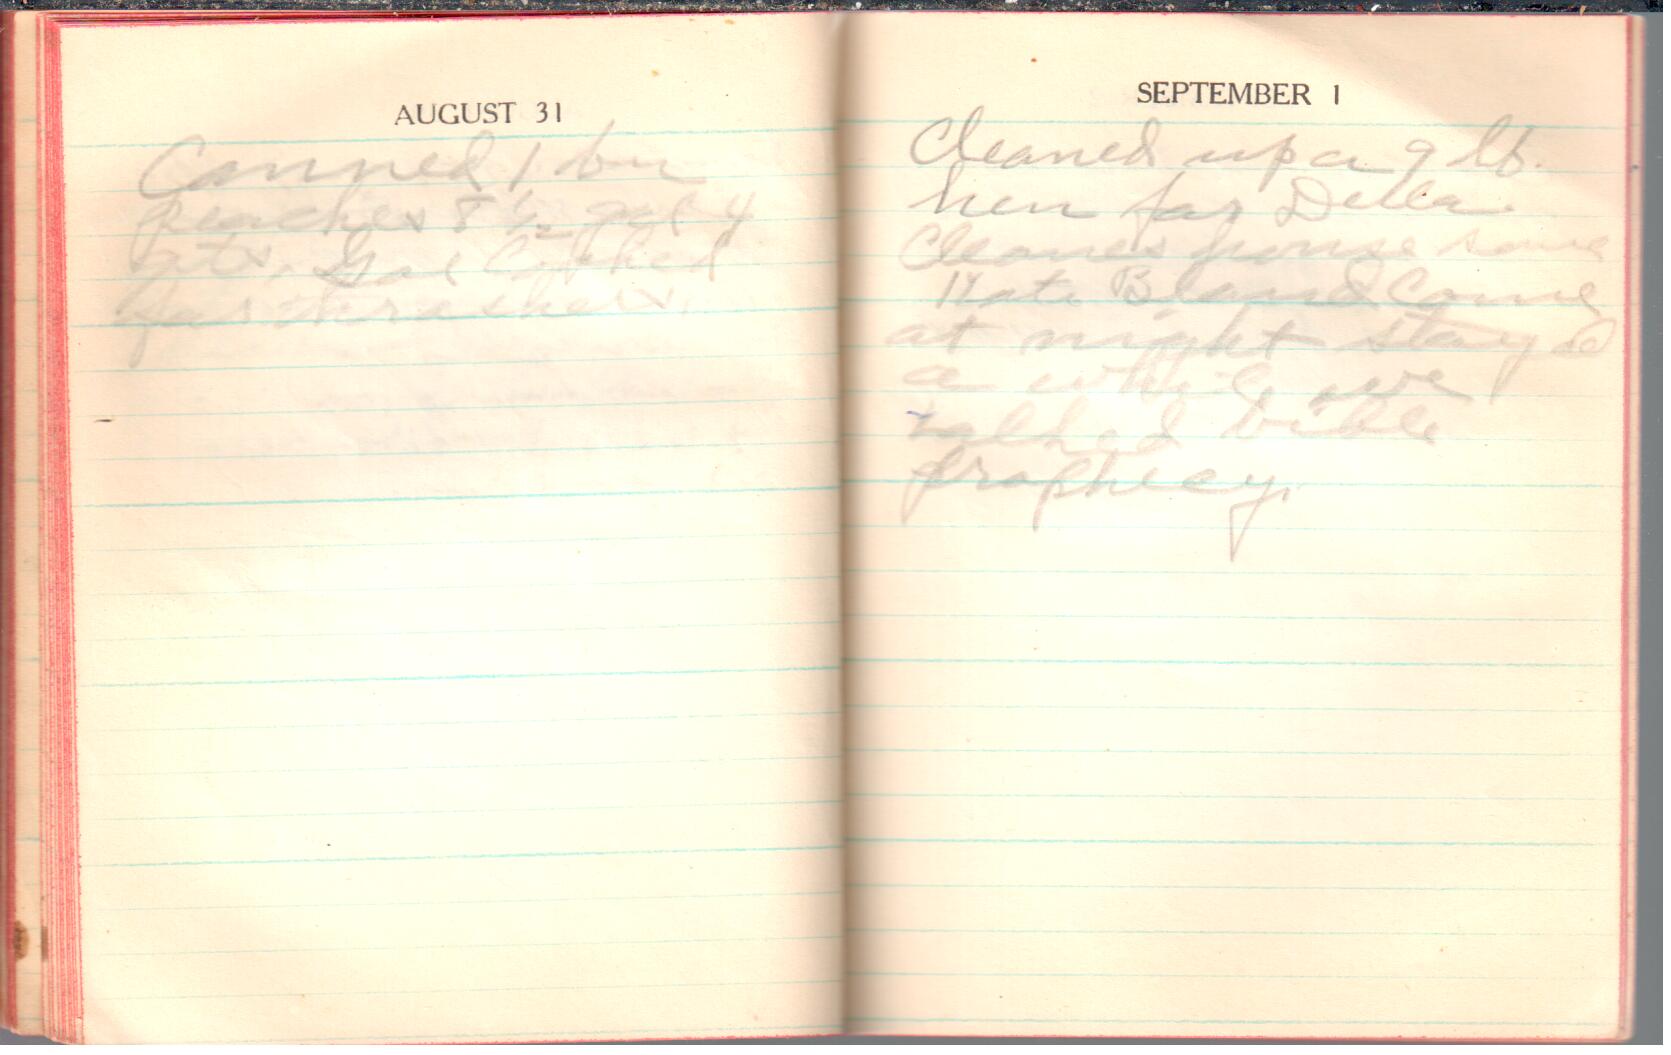 AUGUST 31
Canned 1 bu
peaches 8 ½ gal 4
qts.
for thrashers.
SEPTEMBER 1
Cleaned up a 9 lb.
hen for Della
Cleaned house some
Kate Bland Come
at night stayed
a while we
talked bible
prophecy.